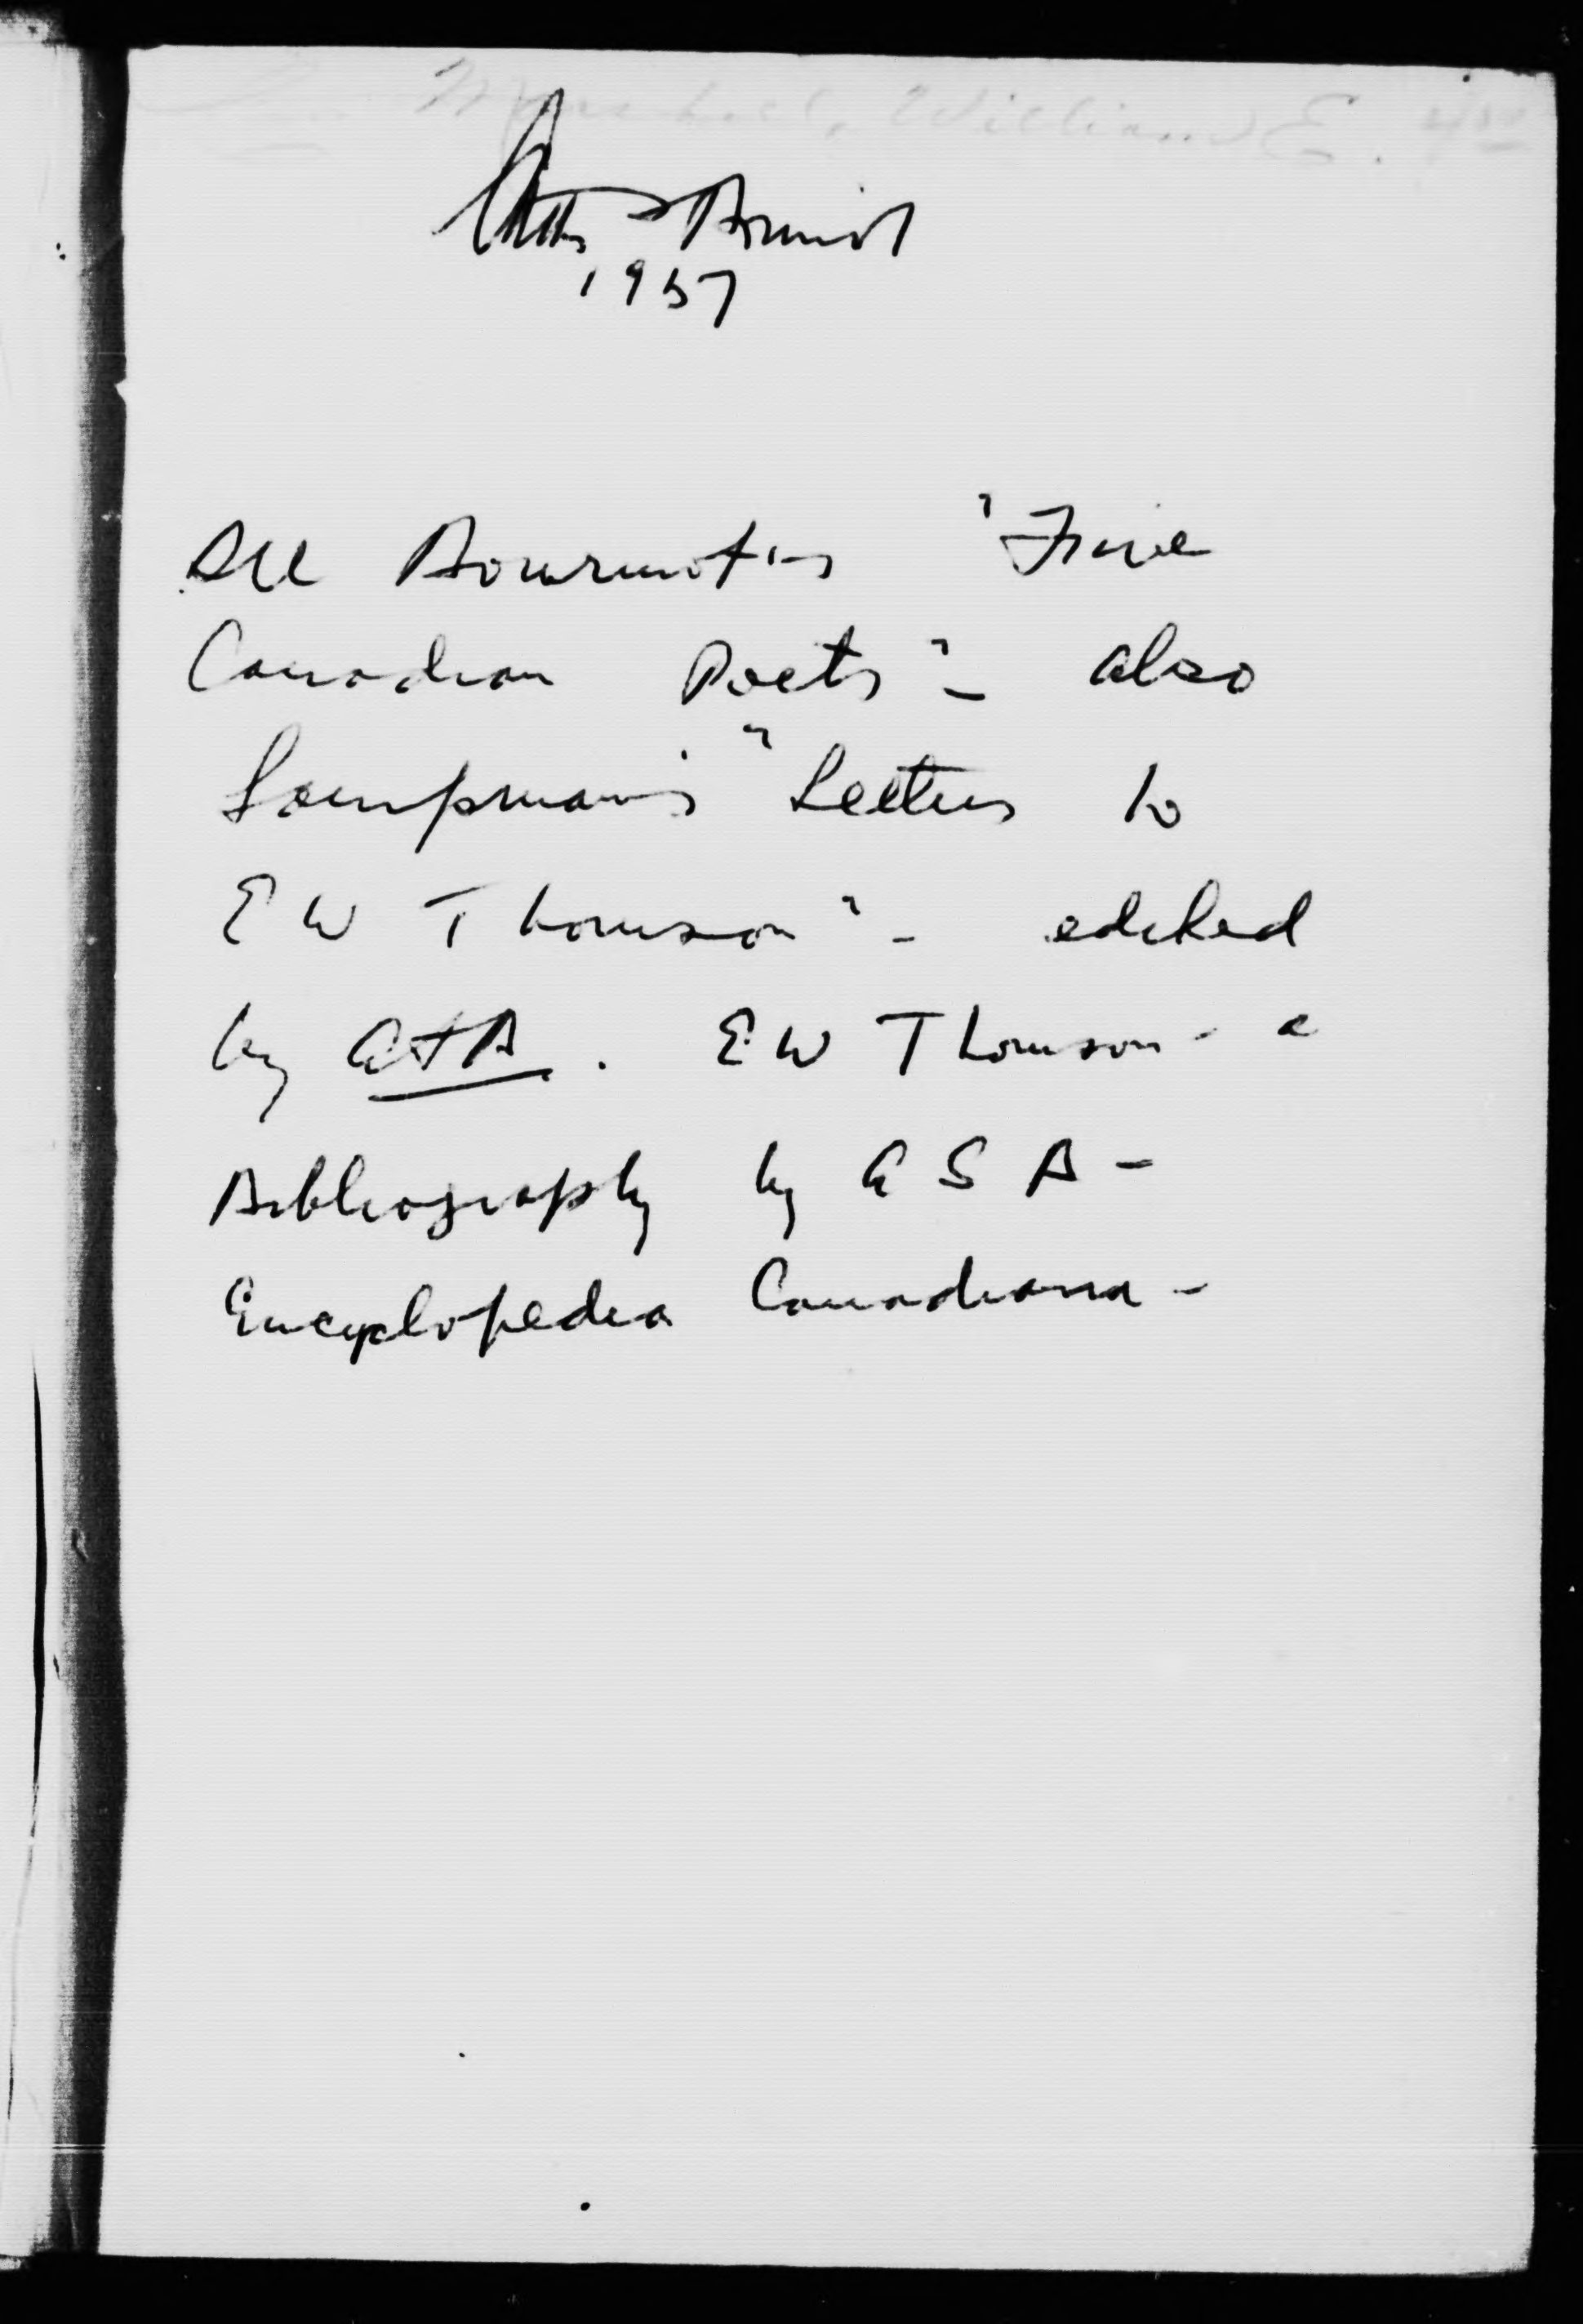 Marshall, William E.
Arthur S Bourinot
1957
See Bourinot's "Five
Canadian Poets" – also
Lampman's "Letters to
E W Thomson" – edited
by ASB. E W Thomson – a
Bibliography by A S B –
Encyclopedia Canadiana –